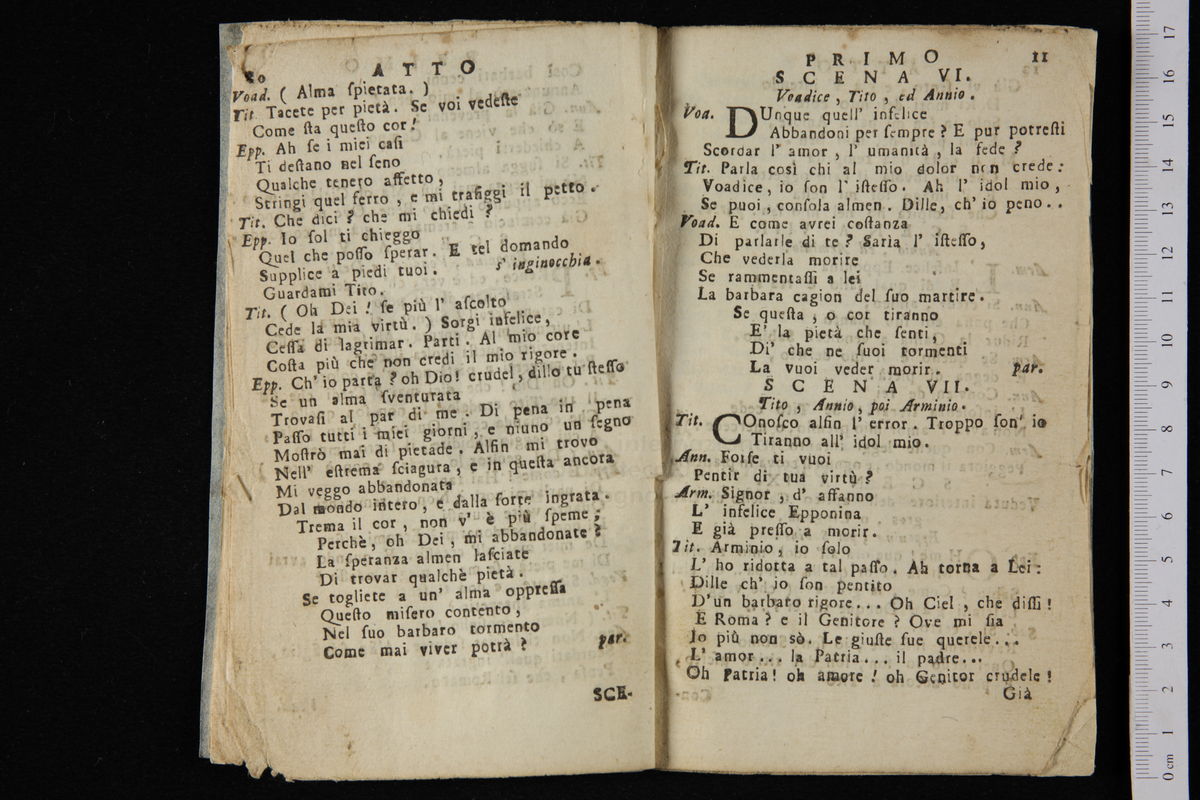 10
A T T O
Voad. ( Alma ſpietata. )
Tit. Tacete per pietà. Se voi vedeſte
Come ſta queſto cor!
Epp. Ah ſe i miei caſi
Ti deſtano nel ſeno
Qualche tenero affetto,
Stringi quel ferro, e mi trafiggi il petto.
Tit. Che dici? che mi chiedi?
Epp. Io ſol ti chieggo
Quel che poſſo ſperar. E tel domando
Supplice a piedi tuoi. s' inginocchia.
Guardami Tito.
Tit. ( Oh Dei! ſe più l' aſcolto
Cede la mia virtù. ) Sorgi infelice,
Ceſſa di lagrimar. Parti. Al mio core
Coſta più che non credi il mio rigore.
Epp. Ch' io parta? oh Dio! crudel, dillo tu ſteſſo
Se un alma ſventurata
Trovaſi al par di me. Di pena in pena
Paſſo tutti i miei giorni, e niuno un ſegno
Moſtrò mai di pietade. Alfin mi trovo
Nell' eſtrema ſciagura, e in queſta ancora
Mi veggo abbandonata
Dal mondo intero, e dalla ſorte ingrata.
Trema il cor, non v' è più ſpeme;
Perchè, oh Dei, mi abbandonate?
La ſperanza almen laſciate
Di trovar qualchè pietà.
Se togliete a un' alma oppreſſa
Queſto miſero contento,
Nel ſuo barbaro tormento
Come mai viver potrà? par.
SCE-
P R I M O
11
S C E N A VI.
Voadice, Tito, ed Annio.
Voa. DUnque quell' infelice
Abbandoni per ſempre? E pur potreſti
Scordar l' amor, l' umanità, la fede?
Tit. Parla così chi al mio dolor non crede:
Voadice, io ſon l' iſteſſo. Ah l' idol mio,
Se puoi, conſola almen. Dille, ch' io peno..
Voad. E come avrei coſtanza
Di parlarle di te? Saria l' iſteſſo,
Che vederla morire
Se rammentaſſi a lei
La barbara cagion del ſuo martire.
Se queſta, o cor tiranno
E' la pietà che ſenti,
Di' che ne ſuoi tormenti
La vuoi veder morir. par.
S C E N A VII.
Tito, Annio, poi Arminio.
Tit. COnoſco alfin l' error. Troppo ſon' io
Tiranno all' idol mio.
Ann. Forſe ti vuoi
Pentir di tua virtù?
Arm. Signor, d' affanno
L' infelice Epponina
E già preſſo a morir.
Tit. Arminio, io ſolo
L' ho ridotta a tal paſſo. Ah torna a Lei:
Dille ch' io ſon pentito
D'un barbaro rigore... Oh Ciel, che diſſi!
E Roma? e il Genitore? Ove mi ſia
Io più non sò. Le giuſte ſue querele...
L' amor... la Patria... il padre...
Oh Patria! oh amore! oh Genitor crudele!
Già